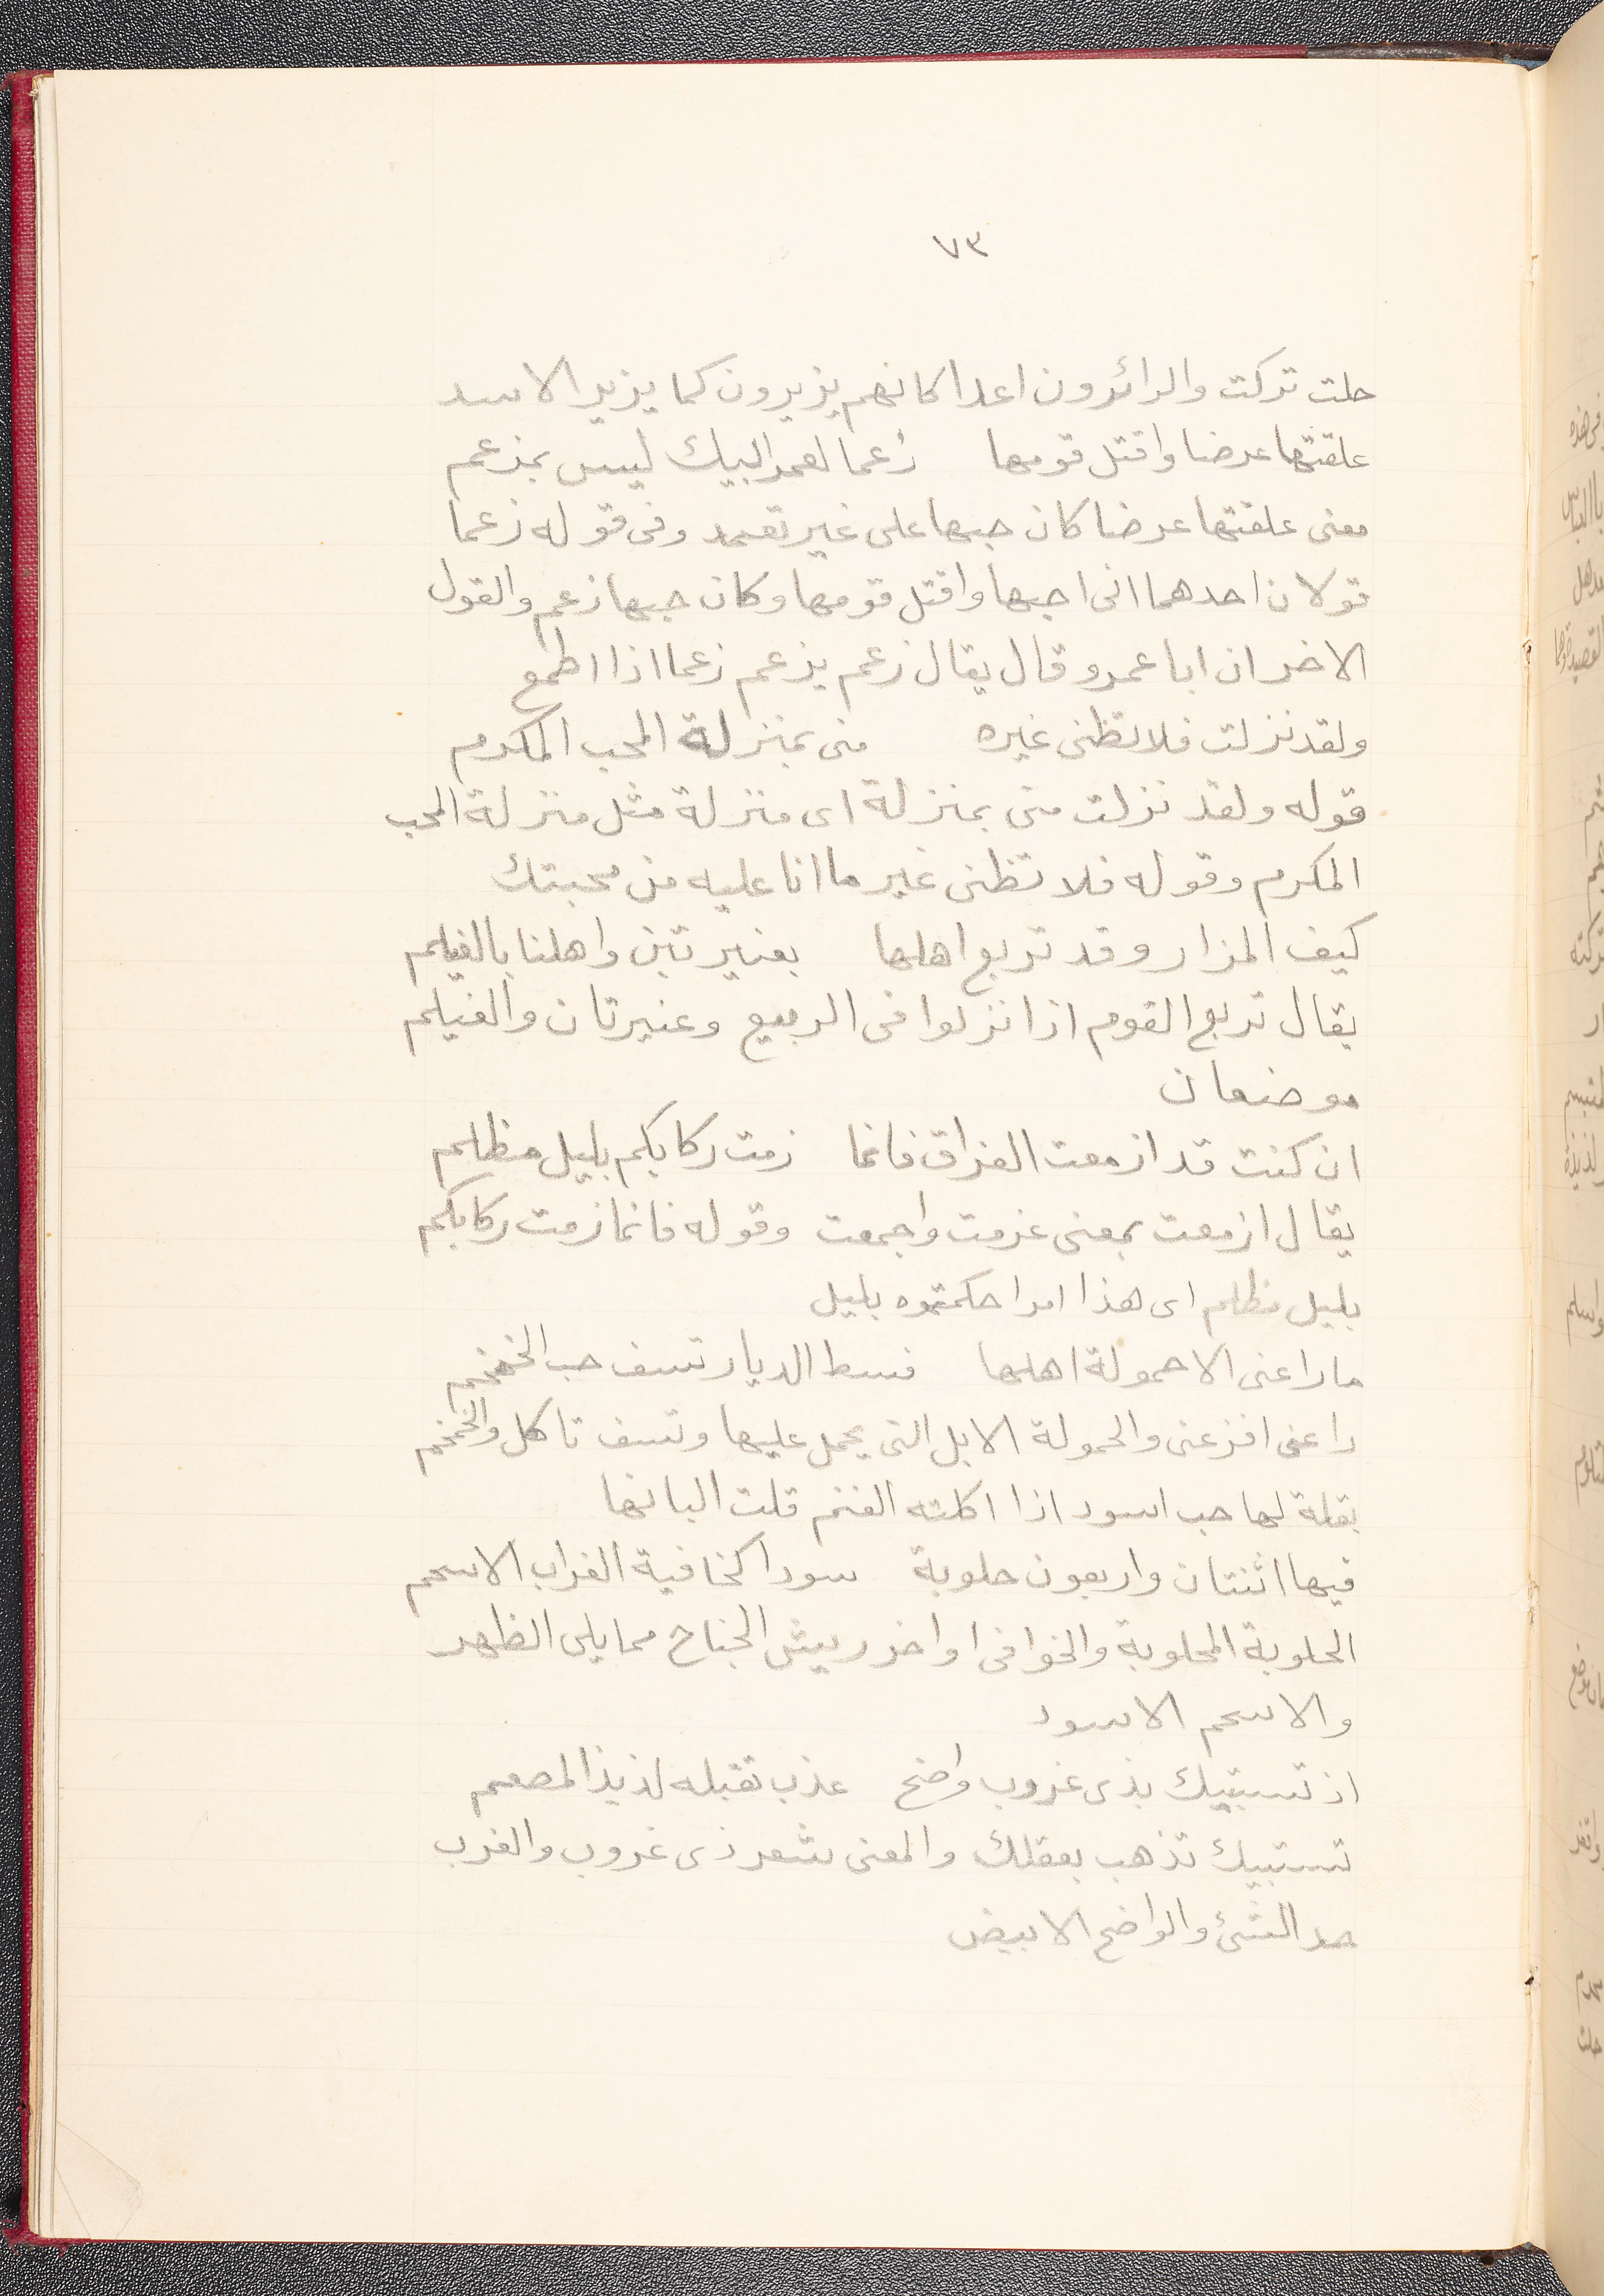 ٧٣
حلت تركت والزائرون اعدا كانهم يزيرون كما يزير الاسد
علقتها عرضا واقتل قومها زعما لعمر ابيك ليس بمزعم
معنى علقتها عرضا كان حبها على غير تعمد وفى قوله زعما
قولان احدهما انى احبها واقتل قومها وكان حبها زعم والقول
الاخر ان ابا عمرو قال يقال زعم يزعم زعما اذا اطمع
ولقد نزلت فلا تظنى غيره منى بمنزلة المحب المكرم
قوله ولقد نزلت منى بمنزلة اى منزلة مثل منزلة المحب
المكرم وقوله فلا تظنى غير ما انا عليه من محبتك
كيف المزار وقد تربع اهلها بعنيرتين واهلنا بالغيلم
يقال تربع القوم اذا نزلوا فى الربيع وعنيرتان والغيلم
موضعان
ان كنت قد ازمعت الفراق فانما زمت ركابكم بليل مظلم
يقال ازمعت بمعنى عزمت واجمعت وقوله فانما زمت ركابكم
بليل مظلم اى هذا امر احكمتموه بليل
ما راعنى الا حمولة اهلها فسط الديار تسف حب الخمخم
راعنى افزعنى والحمولة الابل التى يحمل عليها وتسف تاكل والخمخم
بقلة لها حب اسود اذا اكلته الغنم قلت البانها
فيها اثنتان واربعون حلوبة سودا كخافية الغراب الاسحم
الحلوبة المحلوبة والخوافى اواخر ريش الجناح مما يلى الظهر
والاسحم الاسود
اذ تستبيك بذى غروب واضح عذب تقبله لذيذ المطعم
تستبيك تذهب بعقلك والمعنى بثغر ذى غروب والغرب
حد الشئ والواضح الابيض